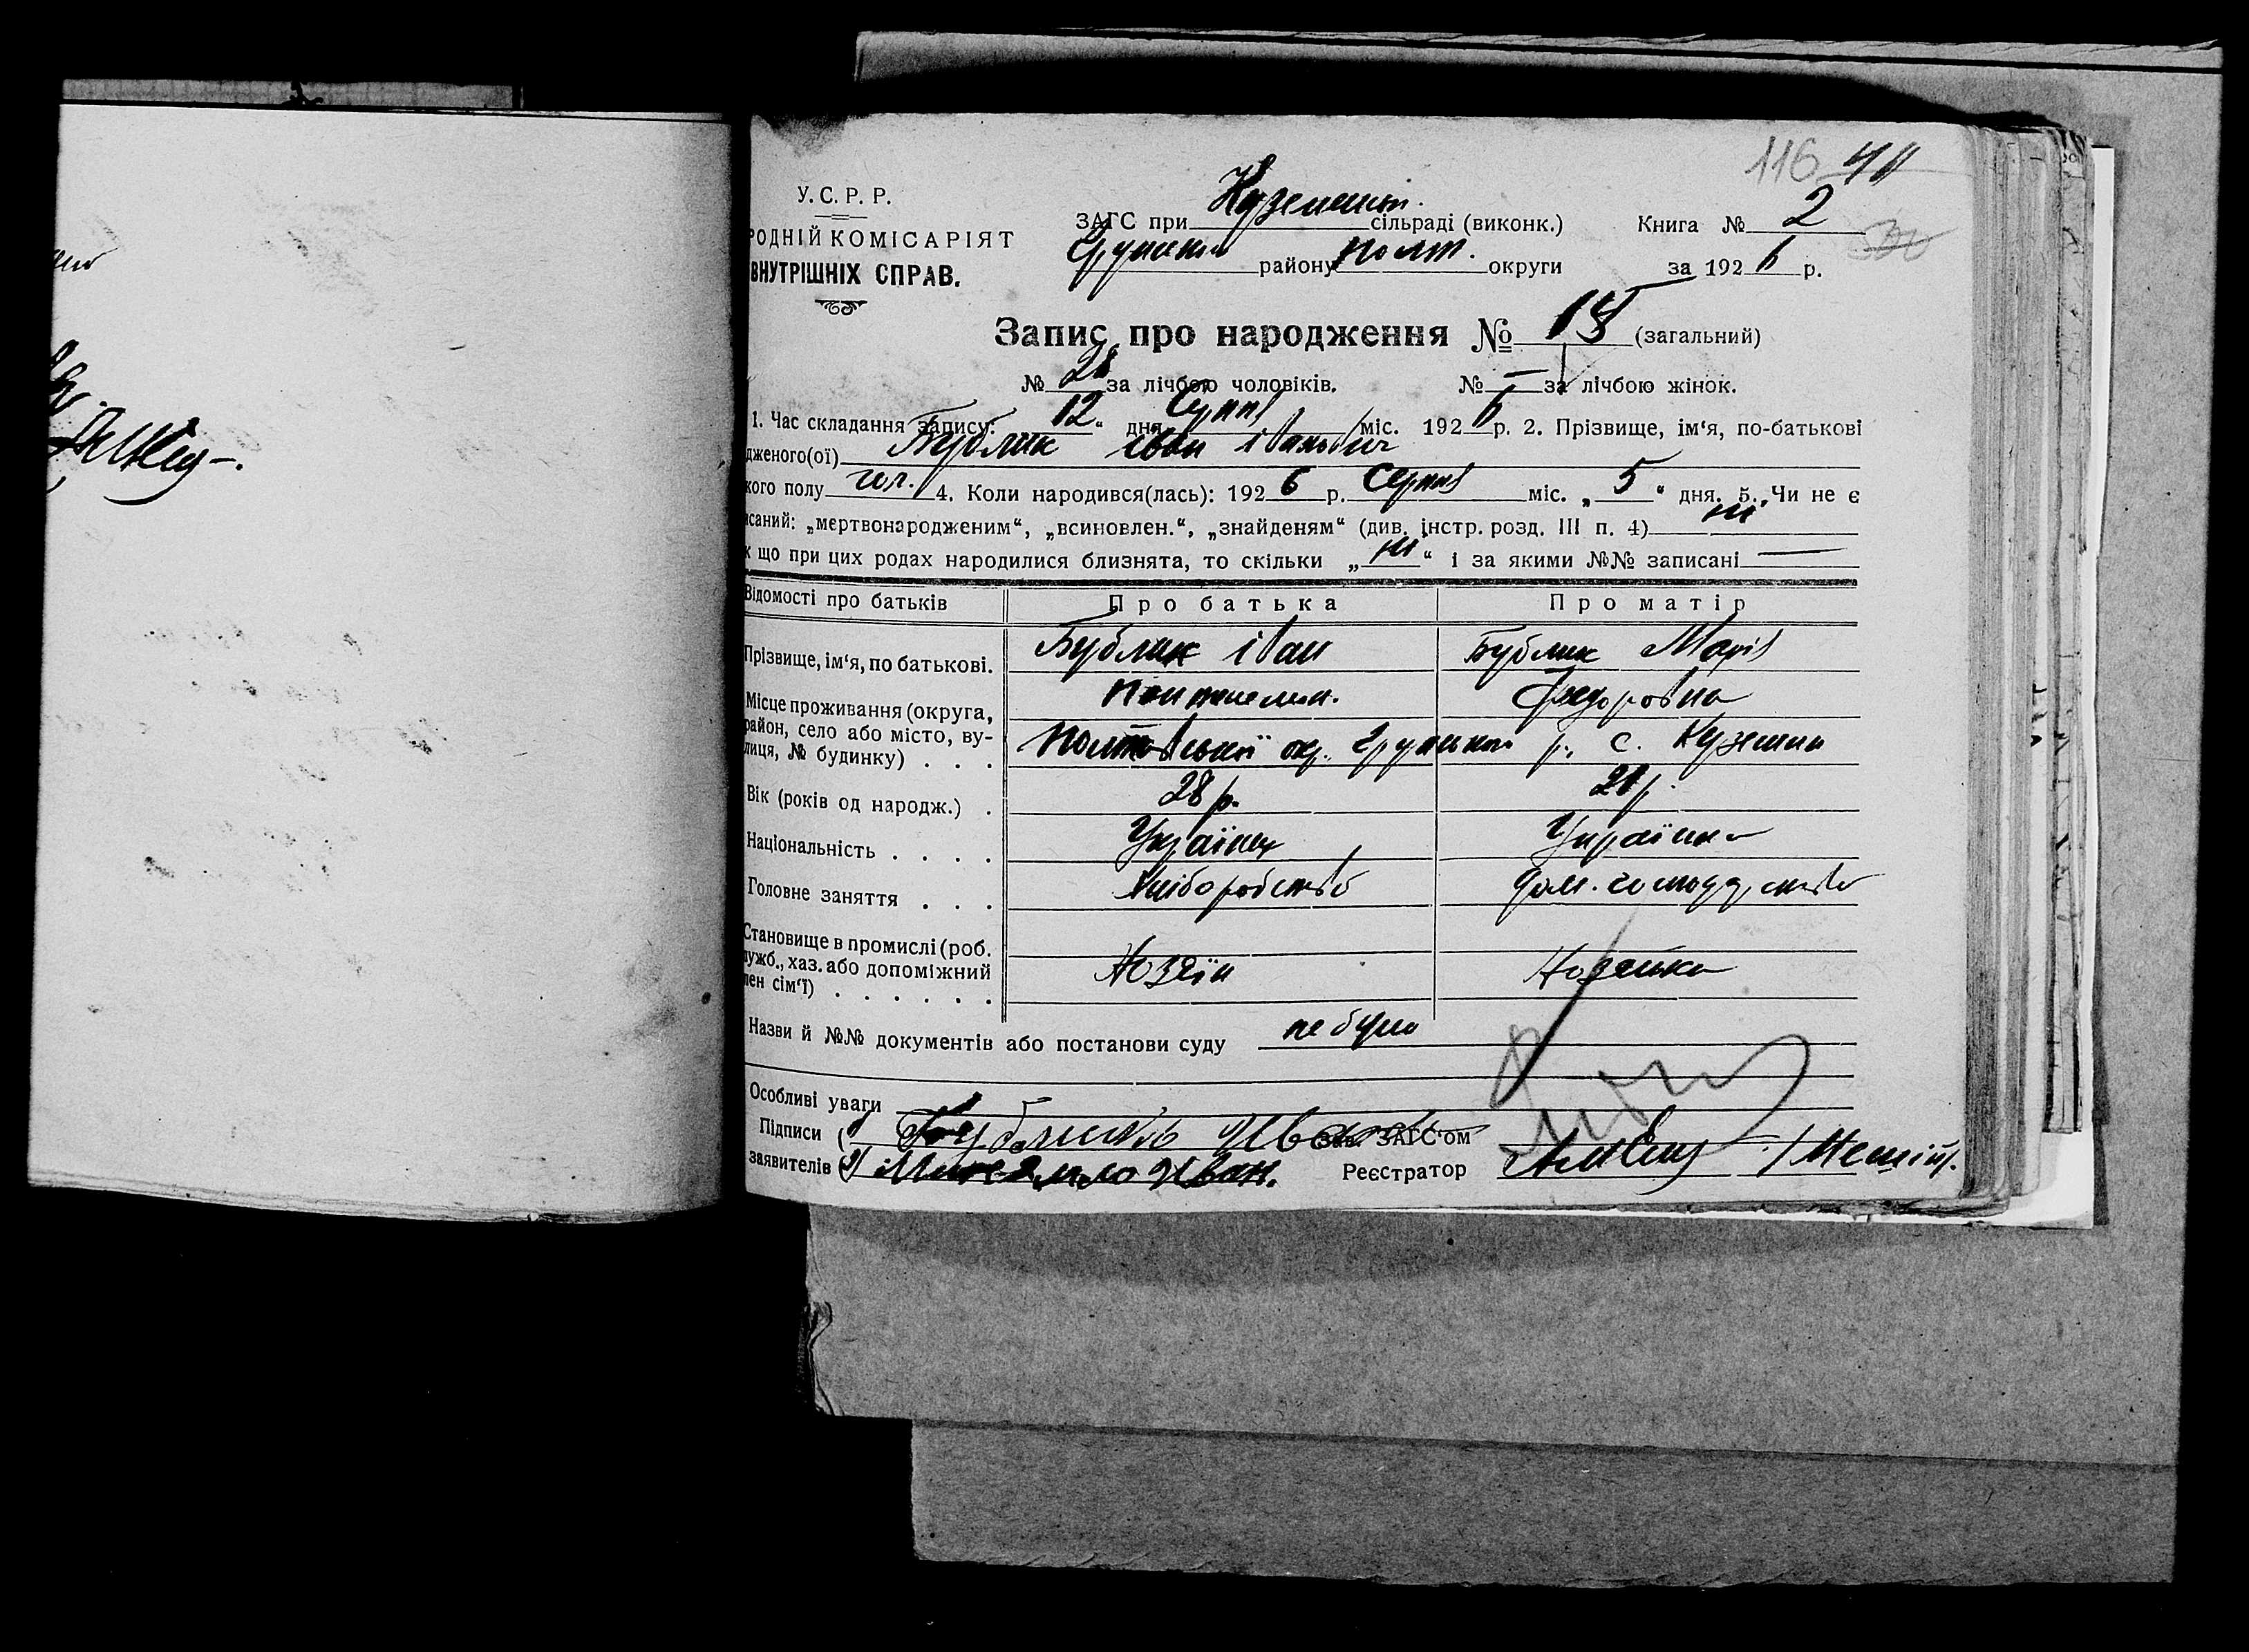 116
У. С. Р. Р.
ЗАГС при сільраді (виконк.) Книга № 2
РОДНІЙ КОМІСАРІЯТ
району Полт. округи за 1926 р.
ВНУТРІШНІХ СПРАВ.
Запис про народження № (загальний)
№ 28 за лічбою чоловіків. № — за лічбою жінок.
1. Час складання запису: 12 “ дня Серпня міс. 1926 р. 2. Прізвище, ім‘я, по-батькові
дженого(ої) Бублик Іван Іванович
кого полу чол. 4. Коли народився(лась): 1926 р. Серпня міс. „ 5 “ дня. 5. Чи не є
исаний: „мертвонародженим“, „всиновлен.“, „знайденям“ (див. інстр. розд. III п. 4) ні
к що при цих родах народилися близнята, то скільки „ ні “ і за якими №№ записані —
Відомості про батьків Про батька Про матір
Прізвище, ім‘я, по батькові. Бублик Іван Бублик Марія
Пантелем. Федоровна
Місце проживання (округа, район, село або місто, вулиця, № будинку) . . . Полтавської окр. Грунського р., с. Куземин
Вік (років од народж.) . 28 р. 21 р.
Національність . . . . Українец Українка
Головне заняття . . . Хліборобство дом. господарство
Становище в промислі (роб.
лужб., хаз. або допоміжний
лен сім‘ї) . . . . . . Хозяїн Хозяйка
Назви й №№ документів або постанови суду не було
Особливі уваги
Підписи Зав. ЗАГС‘ом
заявителів Иван. Реєстратор